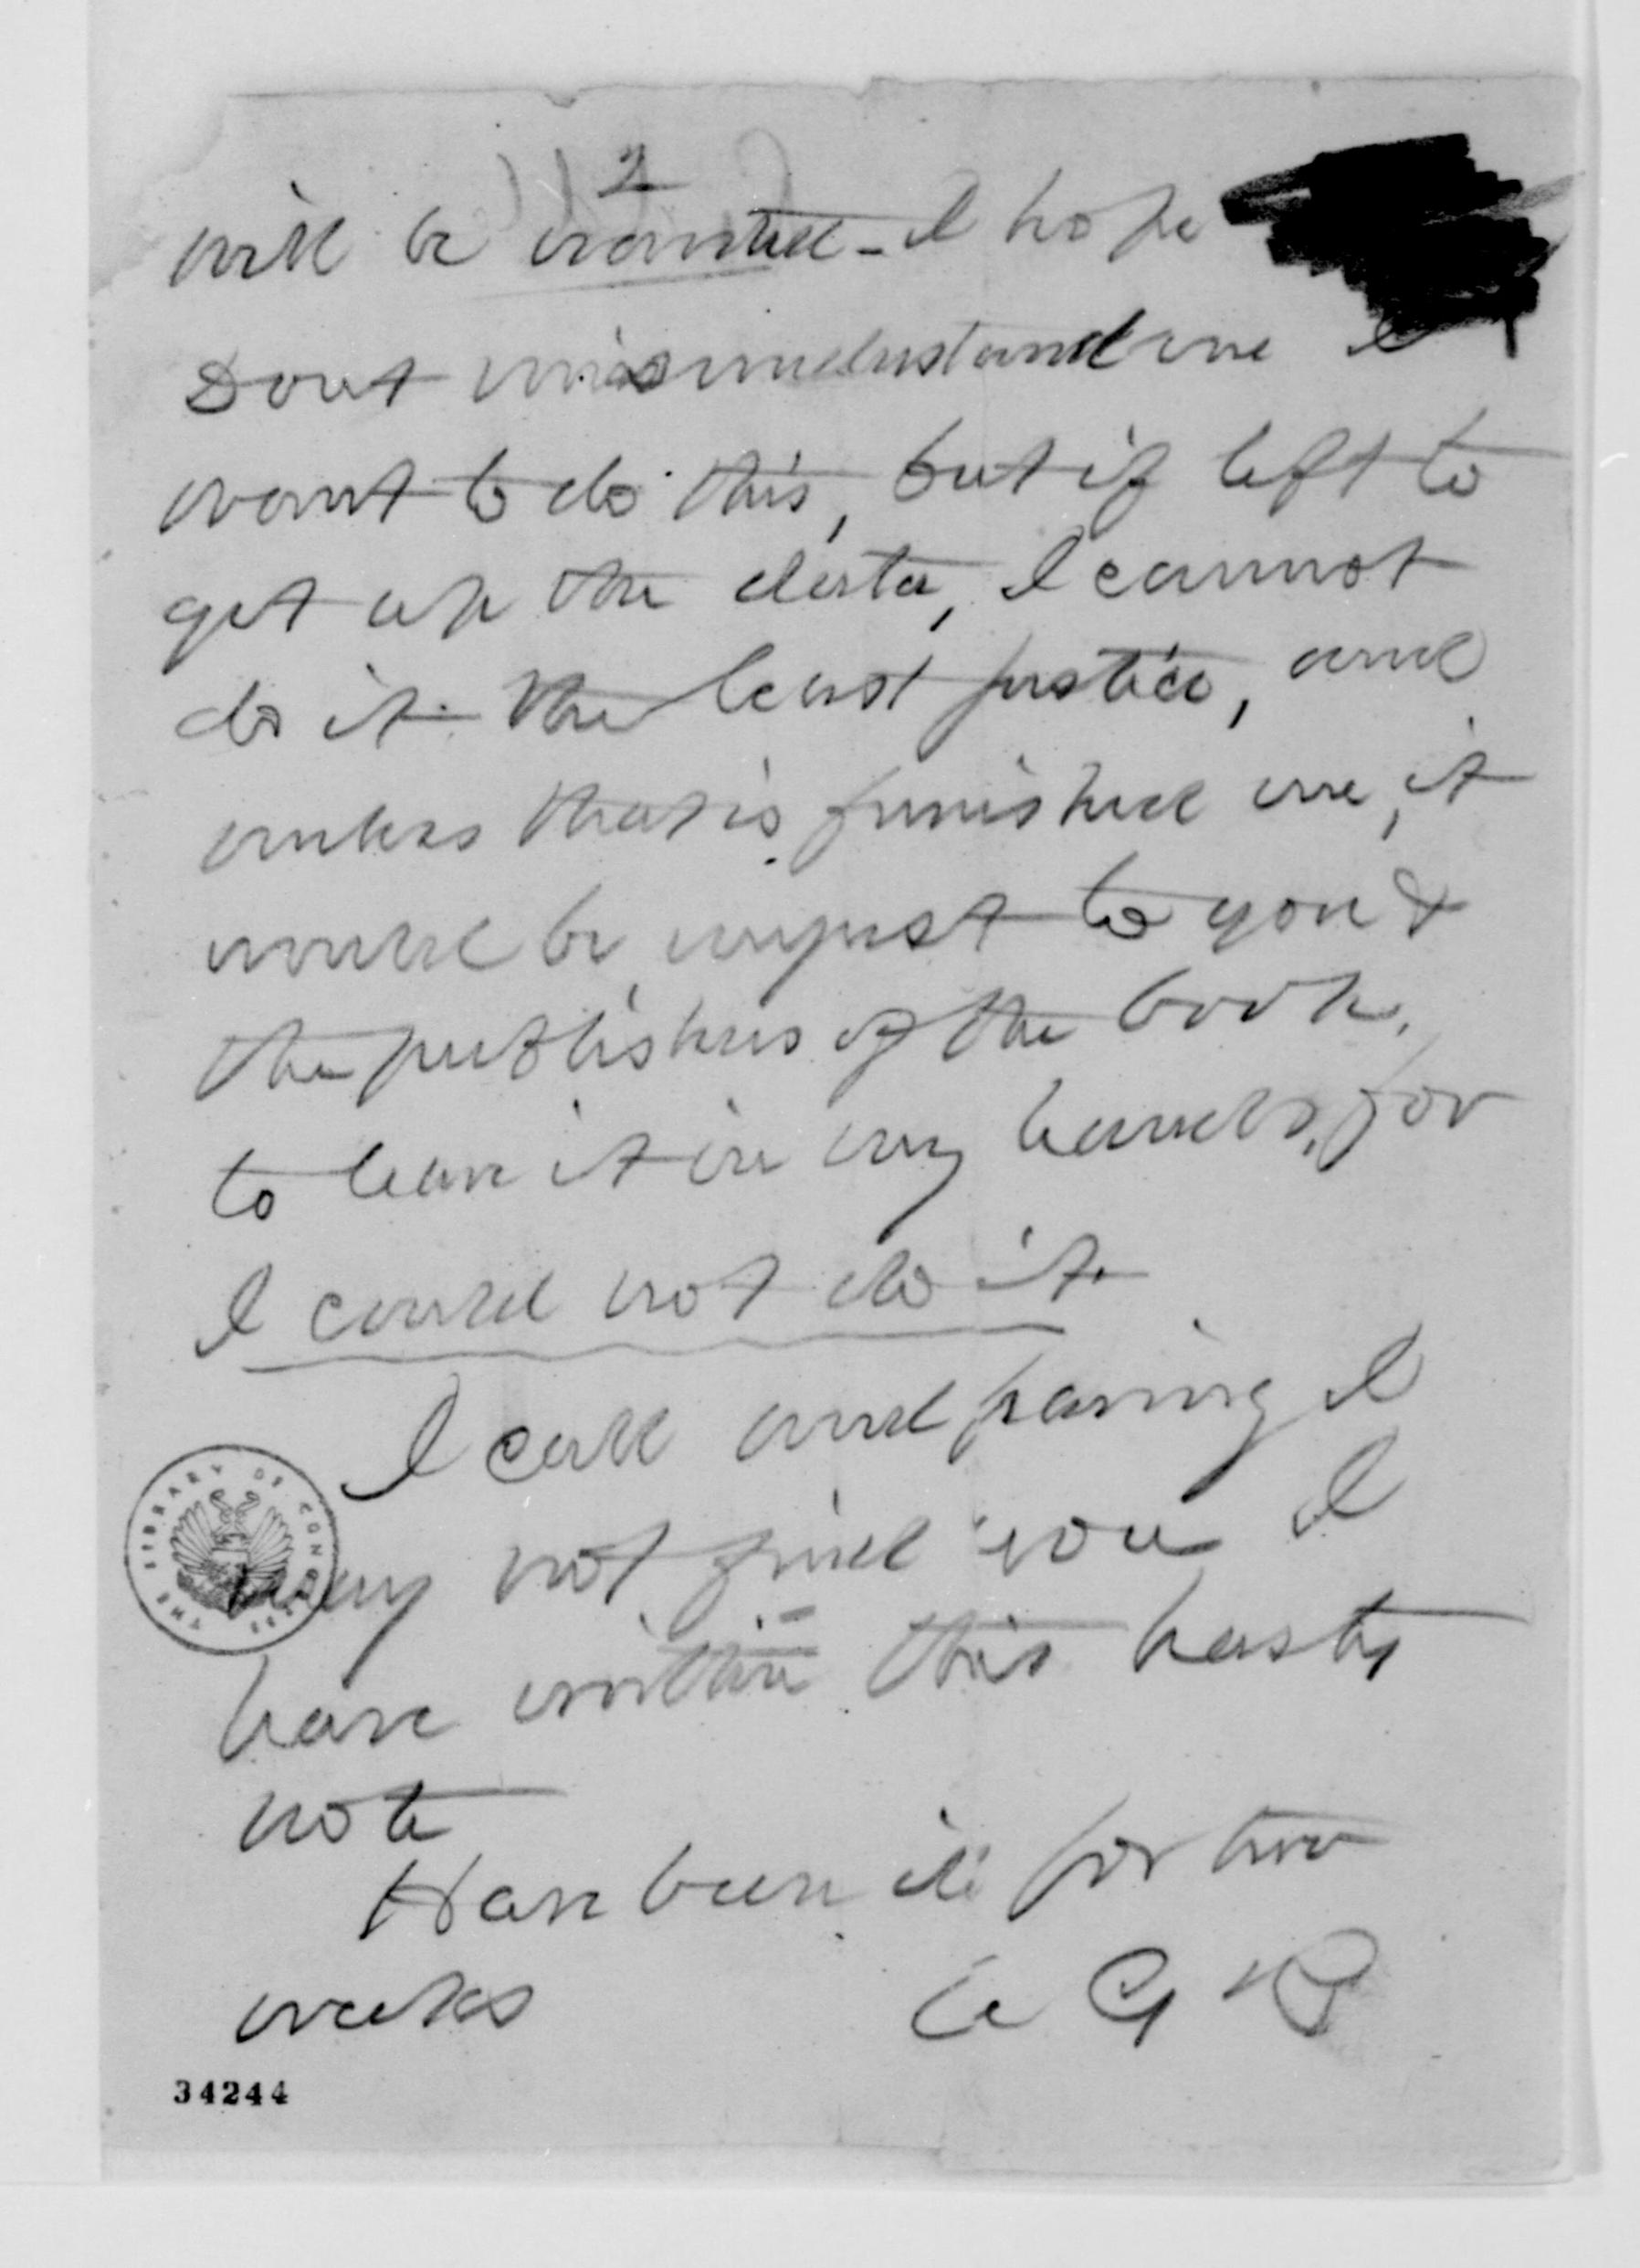 2
will be wanted - I hope
Dont misunderstand me I
want to do this, but if left to
get up the data, I cannot
do it the least justice, and
unless that is furnished me, it
would be unjust to you &
the publishers of the book,
to leave it in my hands, for
I could not do it.
I call and fearing I
may not find you I
have written this hasty
note
Have been ill for two
weeks
A G R
THE LIBRARY OF CONGRESS
34244